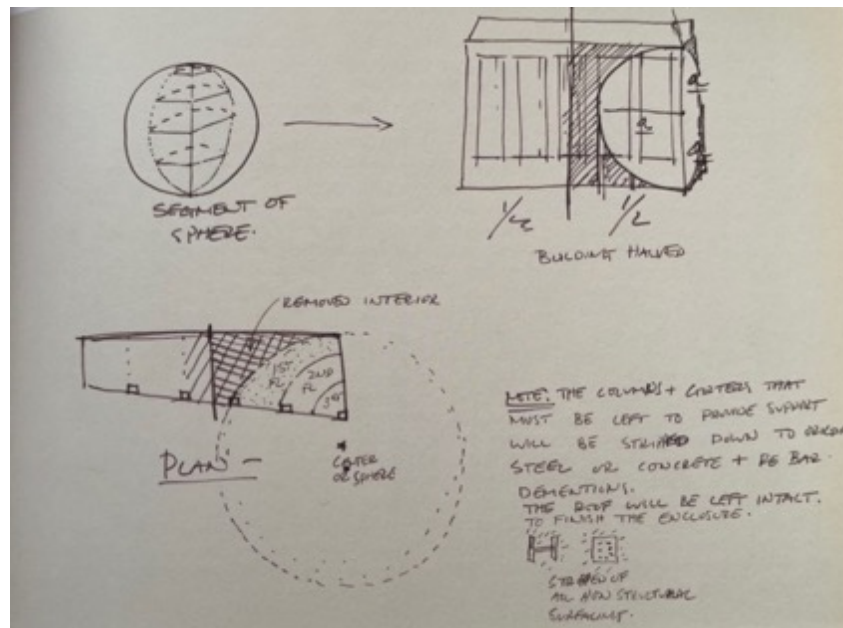 SEGMENT OF
SPHERE.
a
a
a
1/2 1/2
BUILDING HALVED
REMOVED INTERIOR
1ST
FL
2ND
FL
3RD
PLAN -
CENTER
OF SPHERE
NOTE: THE COLUMNS +
THAT
MUST BE LEFT TO PROVIDE SUPPORT
WILL BE STRIPPED DOWN TO
STEEL OR CONCRETE + RE BAR.
DEMENTIONS.
THE ROOF WILL BE LEFT INTACT.
TO FINISH THE ENCLOSURE.
OF
ALL NON STRUCTURAL
SURFACING.